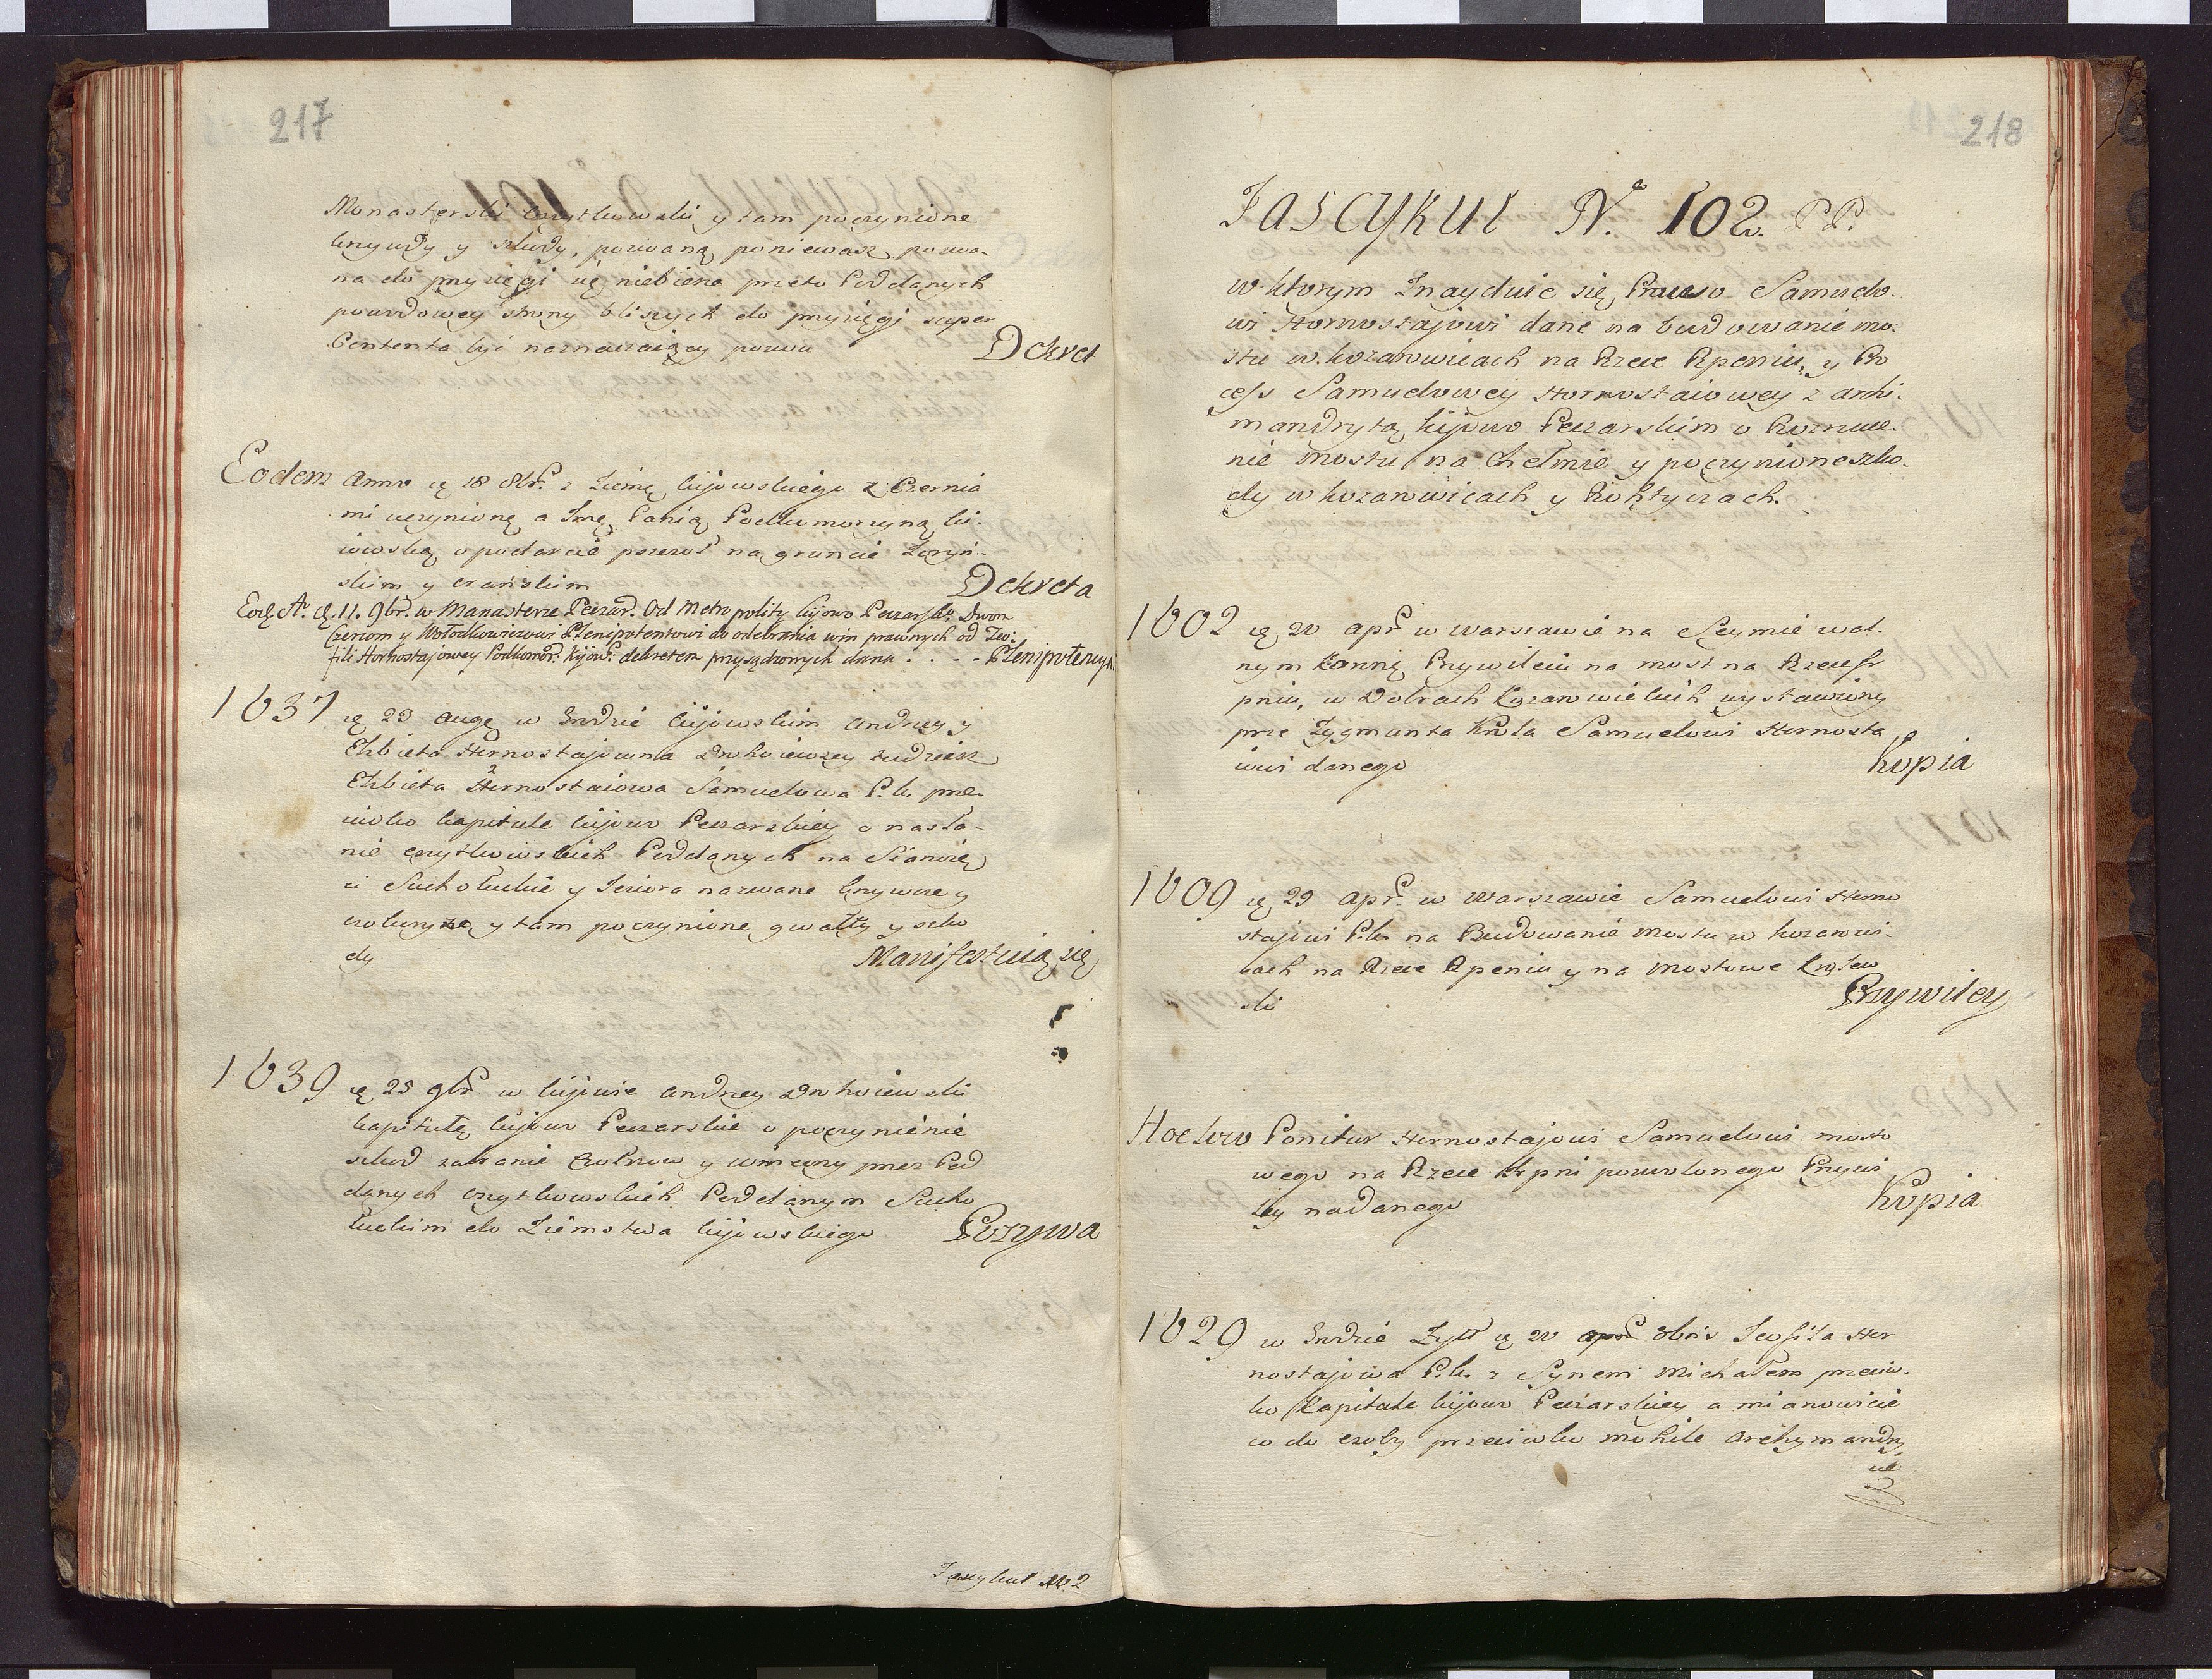 217
Monasterski Czytkowski y tam poczynione
krzywdy y szkody, pozwaną poniewasz pozwa-
na do przysięgi się niebierze przeto Poddanych
powodowey strony bliszych do przysięgi super
Contenta być naznaczaiący pozwu Dekret
Eodem Anno d. 18 8br. z Ziemi kijowskiego z Czernia
mi uczynioną a Jmę Panią Podkomorzyną ki-
iowską o podarcie pszczoł na gruncie Zoryń-
skim y crańskim Dekreta
Eod. Ao. d. 11. 9br. w Manasterze Peczar. Od Metropolity kijowo Peczarsko. Dwom
Czercom y Wołodkowiczowi Plenipotentowi do odebrania win prawnych od Teo-
fili Hornostajowey Podkomor. Kijow. dekretem przysądzonych dana . . - - Plenipotencya.
1637 d. 29 Aug. w Grodzie kijowskim Andrzey y
Elzbieta Hornostajowna Drohoiewscy tudziesz
Elzbieta Hornostaiowa Samuelowa P. k. prze-
ciwko kapitule kijowo Peczarskiey o nasła-
nie czytkowskich Poddanych na Sianożę
ci Suchołuckie y Jeziora nazwane krzywcze y
czolunyze y tam poczynione gwałty y szko
dy Manifestuią się
1639 d. 25 9br. w kijowie Andrzey Drohoiewski
kapitułę kijowo Peczarskie o poczynienie
szkod zabranie Czołnow y winiczny przez Pod
danych czytkowskich Poddanym Sucho
łuckim do Ziemstwa kijowskiego Pozywa
Fascykuł No. 2
218
Fascykuł No. 102. PP.
w ktorym Znayduie się Prawo Samuelo-
wi Hornostajowi dane na budowanie mo-
stu w kozarowicach na Rzece Rpeniu, y Pro
cess Samuelowey Hornostaiowey z archi-
mandrytą kijowo Peczarskim o Rozrzuce-
nie mostu na Chełmie y poczynione szko-
dy w kozarowicach y Rioktyczach.
1602 d. 20 apr. w Warszawie na Seymie wal-
nym Konnię Przywileiu na most na Rzece Jr
pniu, w Dobrach Kozarowickich wystawiony
prze Zygmunta Krola Samuelowi Hornosta
iowi danego Kopia
1609 d. 29 apr. w Warszawie Samuelowi Horno
stajowi P.k. na Budowanie mostu w kozarowi-
cach na Rzece Rpeniu y na mostowe Krolew
ski Przywiley
Hoc loco Ponitur Hornostajowi Samuelowi mosto
wego na Rzece Rpni pozwolonego Przywi
ley nadanego Kopia
1629 w Grodzie Zyt. d. 20 8bris Teofila Hor
nostajowa P.k. z Synem Michałem przeciw-
ko Kapitule kijowo Peczarskiey a mianowicie
co do osoby przeciwko mohile Archymandry
cie